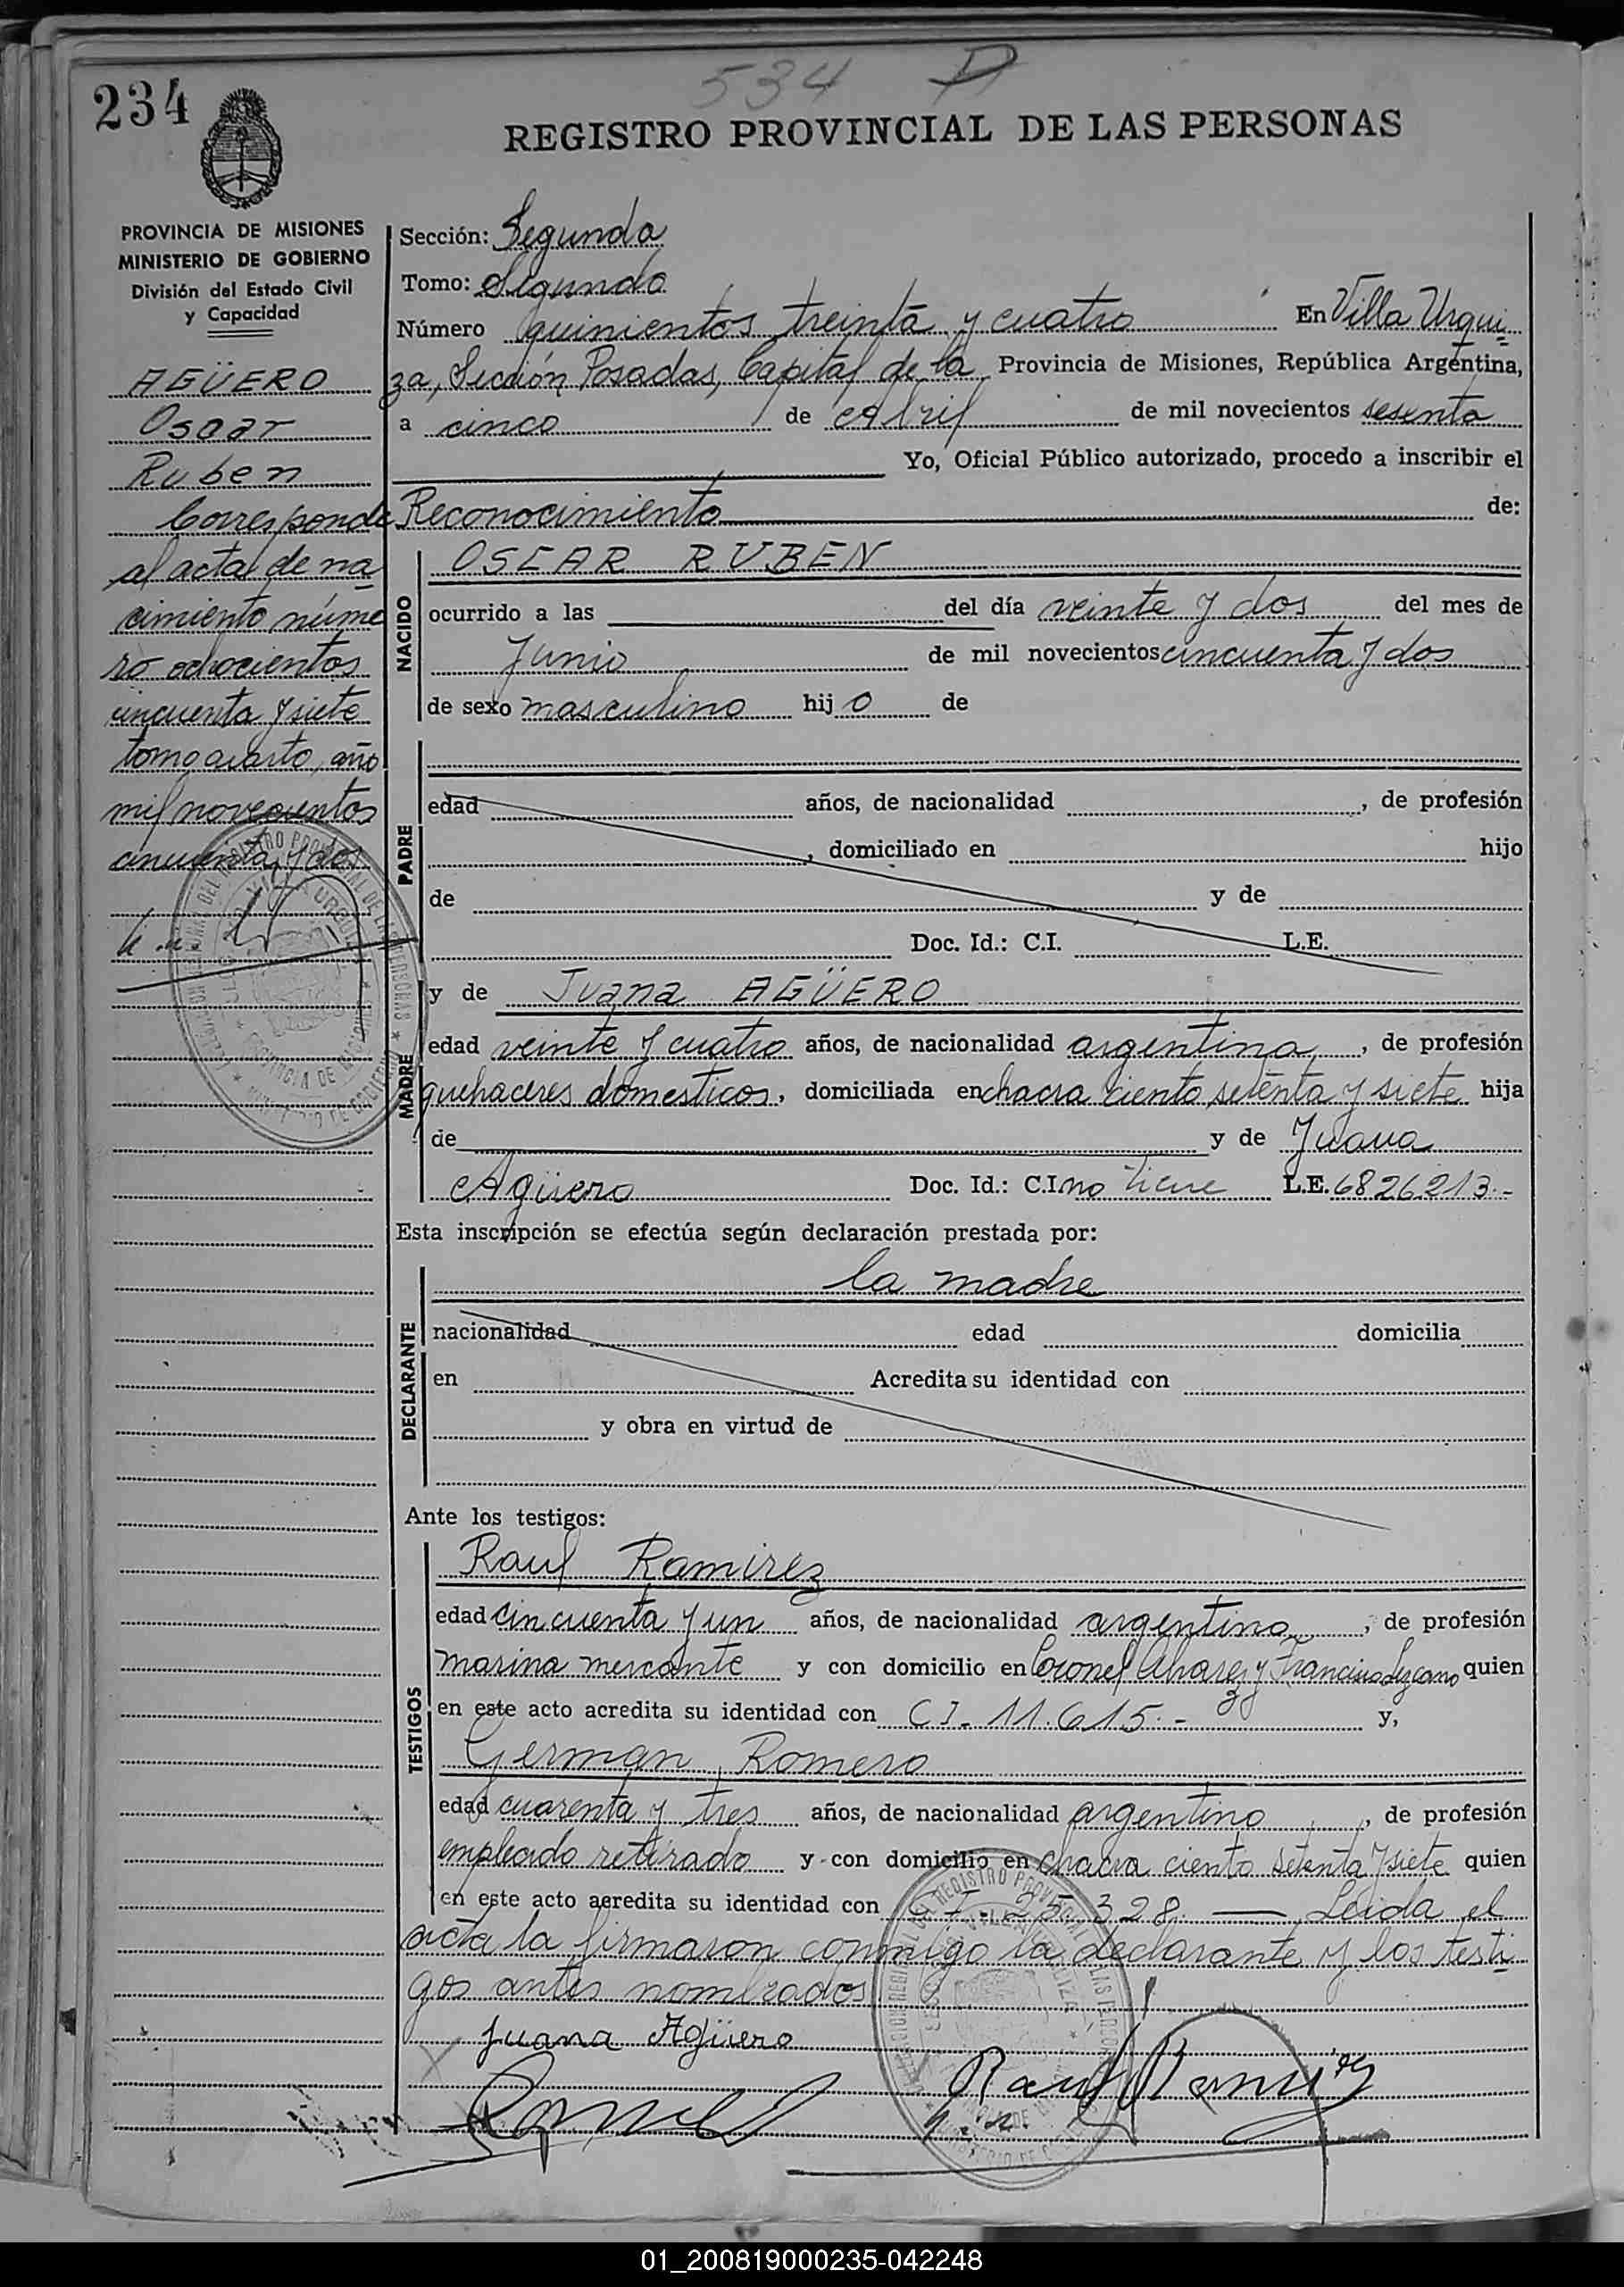 534 D
234
REGISTRO PROVINCIAL DE LAS PERSONAS
PROVINCIA DE MISIONES
MINISTERIO DE GOBIERNO
División del Estado Civil
y Capacidad
AGÜERO
Oscar
Ruben
Corresponde
al acta de na
cimiento núme
ro ochocientos
cincuenta y siete
tomo cuarto, año
mil novecientos
cincuenta y dos
Sección: Segunda
Tomo: Segundo
Número quinientos treinta y cuatro En Villa Urqui
za, Sección Posadas, Capital de la Provincia de Misiones, República Argentina,
a cinco de Abril de mil novecientos sesenta
Yo, Oficial Público autorizado, procedo a inscribir el
Reconocimiento de:
NACIDO
OSCAR RUBEN
ocurrido a las del día veinte y dos del mes de
Junio de mil novecientos cincuenta y dos
de sexo masculino hij o de
PADRE
edad años, de nacionalidad , de profesión
, domiciliado en hijo
de y de
Doc. Id.: C.I. L.E.
MADRE
y de Juana AGÜERO
edad veinte y cuatro años, de nacionalidad argentina , de profesión
quehaceres domesticos, domiciliada en chacra ciento setenta y siete hija
de y de Juana
Agüero Doc. Id.: C.I. no tiene L.E. 6826213.-
Esta inscripción se efectúa según declaración prestada por:
DECLARANTE
la madre
nacionalidad edad domicilia
en Acredita su identidad con
y obra en virtud de
Ante los testigos:
TESTIGOS
Raul Ramirez
edad cincuenta y un años, de nacionalidad argentino , de profesión
marina mercante y con domicilio en Coronel Alvarez y Francisco Lezcano quien
en este acto acredita su identidad con C.I. 11.615.- y,
German Romero
edad cuarenta y tres años, de nacionalidad argentino , de profesión
empleado retirado y con domicilio en chacra ciento setenta y siete quien
en este acto acredita su identidad con C.I. 25.328. — Leida el
acta la firmaron conmigo la declarante y los testi
gos antes nombrados
Juana Agüero
Raul Ramirez
01_200819000235-042248